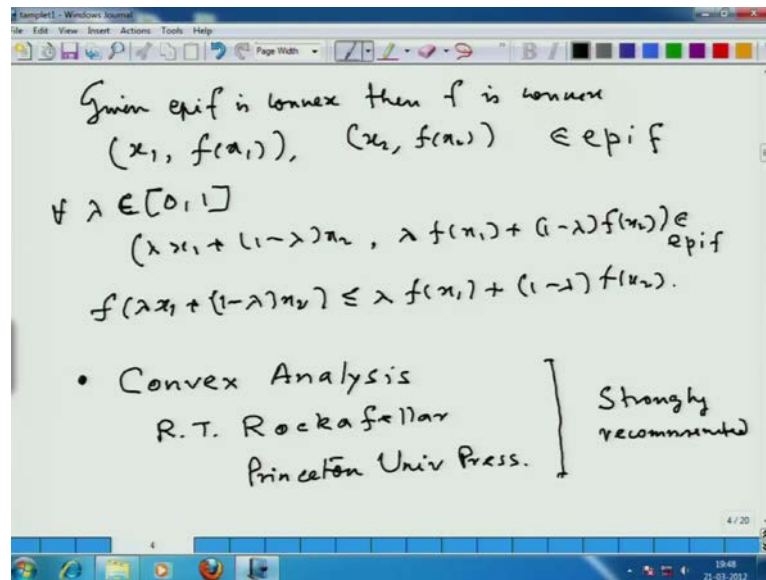 tamplet1 - Windows Journal
File Edit View Insert Actions Tools Help
Page Width
B I
Given epi f is convex then f is convex
(x₁, f(x₁)), (x₂, f(x₂)) ∈ epi f
∀ λ ∈ [0,1]
(λ x₁ + (1-λ) x₂, λ f(x₁) + (1-λ) f(x₂)) ∈
epi f
f(λx₁ + (1-λ)x₂) ≤ λ f(x₁) + (1-λ) f(x₂).
• Convex Analysis
R.T. Rockafellar
Princeton Univ Press.
Strongly
recommended
4 / 20
4
19:48
21-03-2012